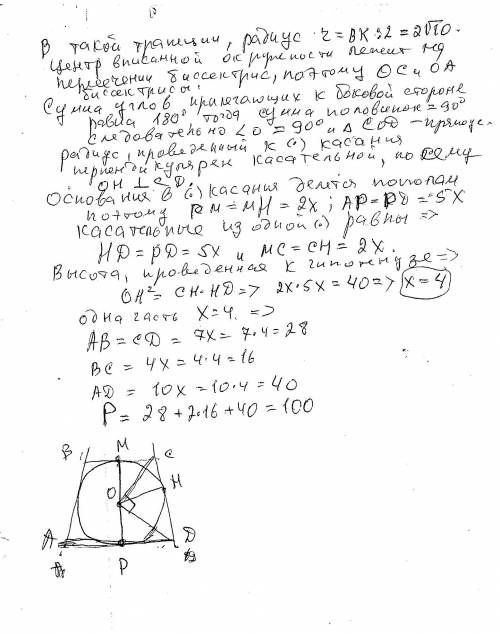 В такой трапеции, радиус r = BK:2 = 2√10.
Центр вписанной окружности лежит на
пересечении биссектрис, поэтому OC и OA
биссектрисы.
Сумма углов прилегающих к боковой стороне
равна 180°, тогда сумма половинок = 90°
следовательно ∠O = 90° и △ COD - прямоуг.
радиус, проведенный к (·) касания
перпендикулярен касательной, поэтому
OH ⊥ CD.
Основания в (·) касания делятся пополам
поэтому BM = MH = 2x; AP = PD = 5x
Касательные из одной (·) равны =>
HD = PD = 5x и MC = CH = 2x.
Высота, проведенная к гипотенузе =>
OH² = CH·HD => 2x·5x = 40 => x = 4
одна часть x = 4. =>
AB = CD = 7x = 7·4 = 28
BC = 4x = 4·4 = 16
AD = 10x = 10·4 = 40
P = 28 + 2·16 + 40 = 100
M
B C
H
O
A D
P